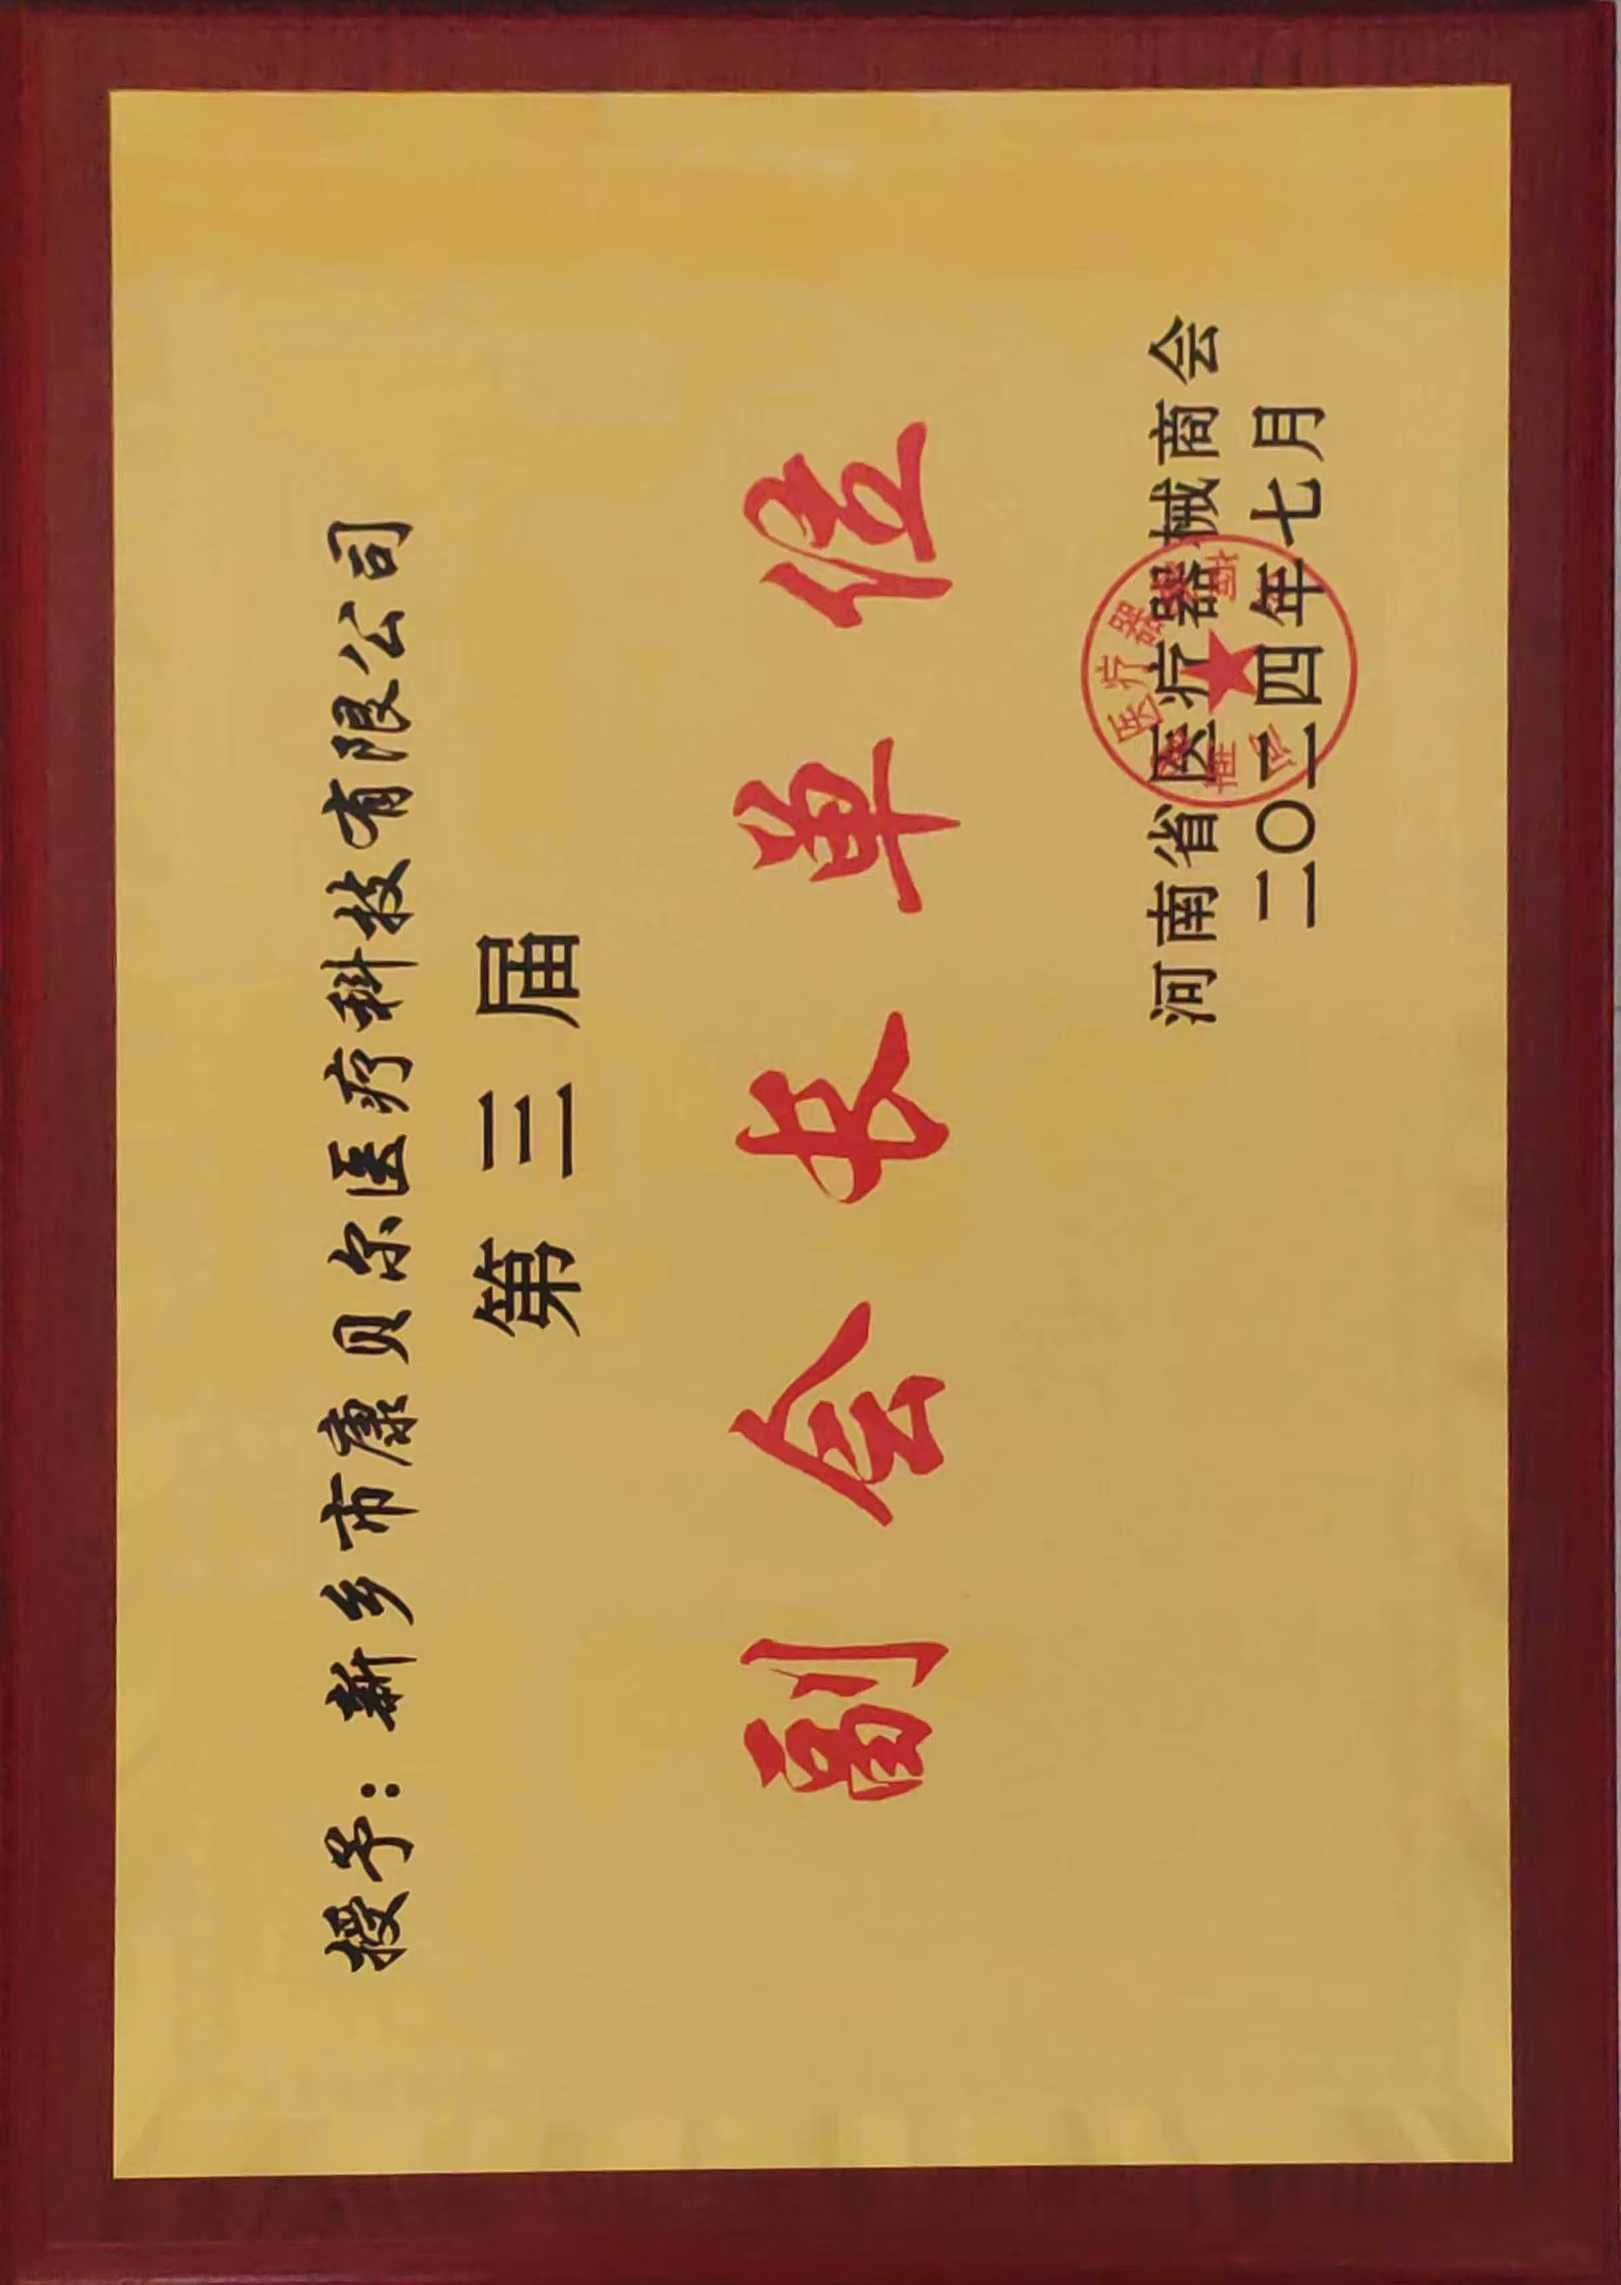 授予：新乡市康贝尔医疗科技有限公司
第三届
副会长单位
河南省医疗器械商会
二〇二四年七月